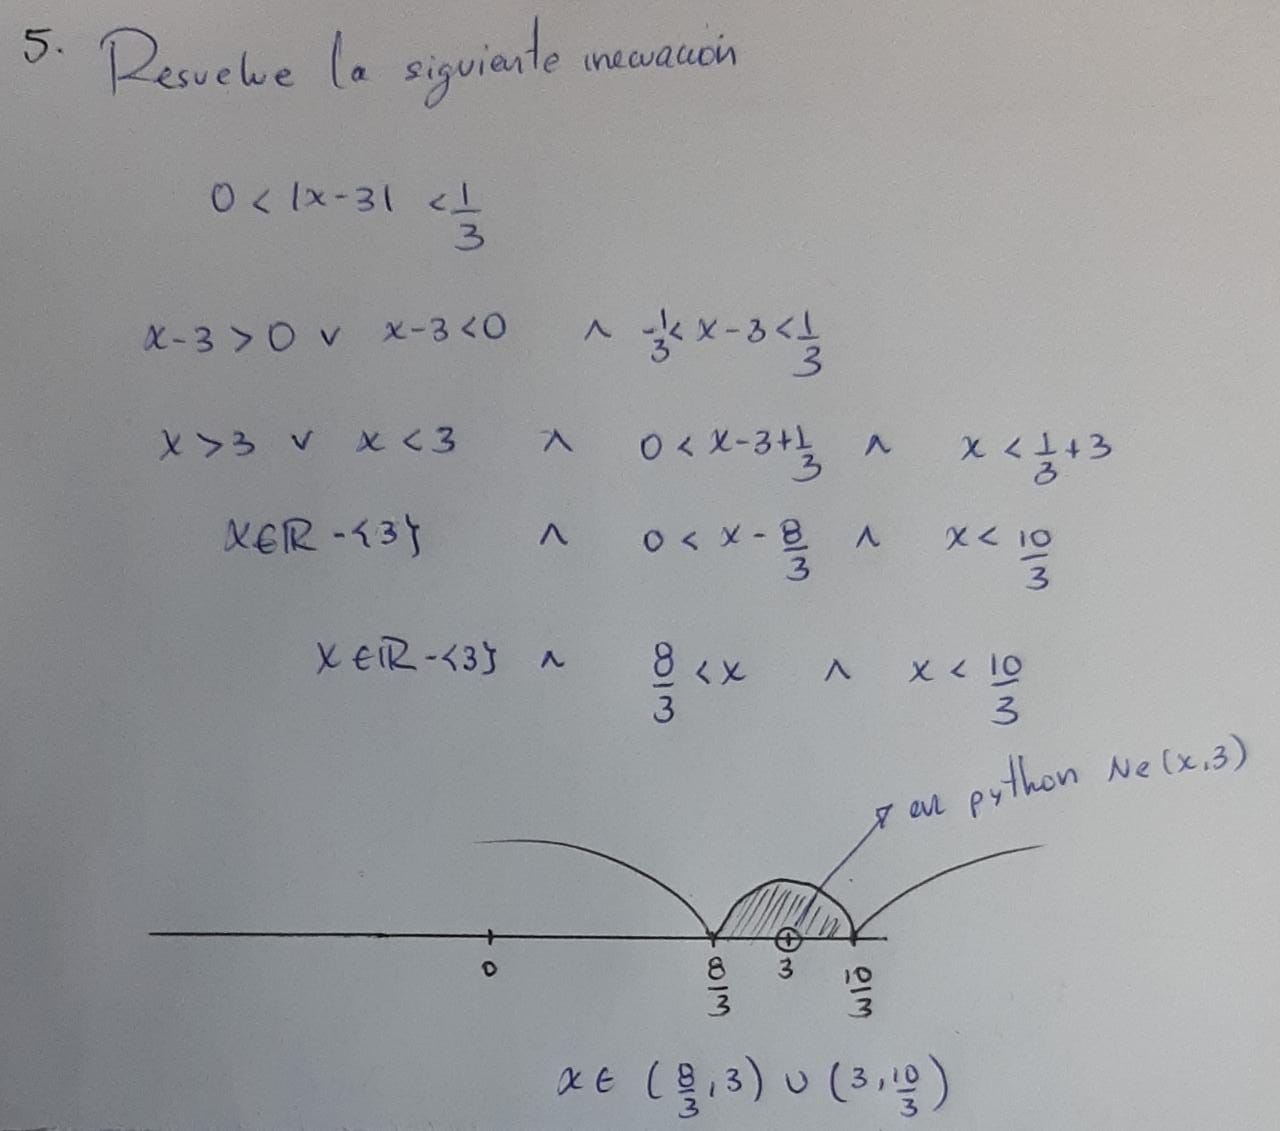 5. Resuelve la siguiente inecuación
0 < |x-3| < 1/3
x-3 > 0 ∨ x-3 < 0 ∧ -1/3 < x-3 < 1/3
x > 3 ∨ x < 3 ∧ 0 < x-3+1/3 ∧ x < 1/3+3
x∈ℝ-{3} ∧ 0 < x-8/3 ∧ x < 10/3
x∈ℝ-{3} ∧ 8/3 < x ∧ x < 10/3
en python Ne(x,3)
0 8/3 3 10/3
x∈ (8/3,3) ∪ (3,10/3)